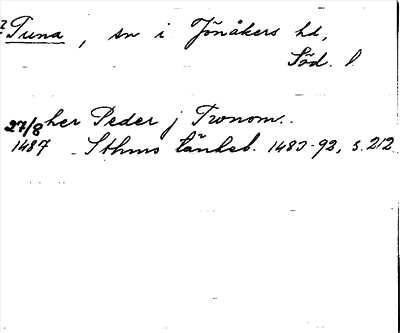 Tuna, sn i Jönåkers hd,
Söd. l.
27/8 her Peder j Tronom..
1487 Sthms tänkeb. 1483-92, s. 212